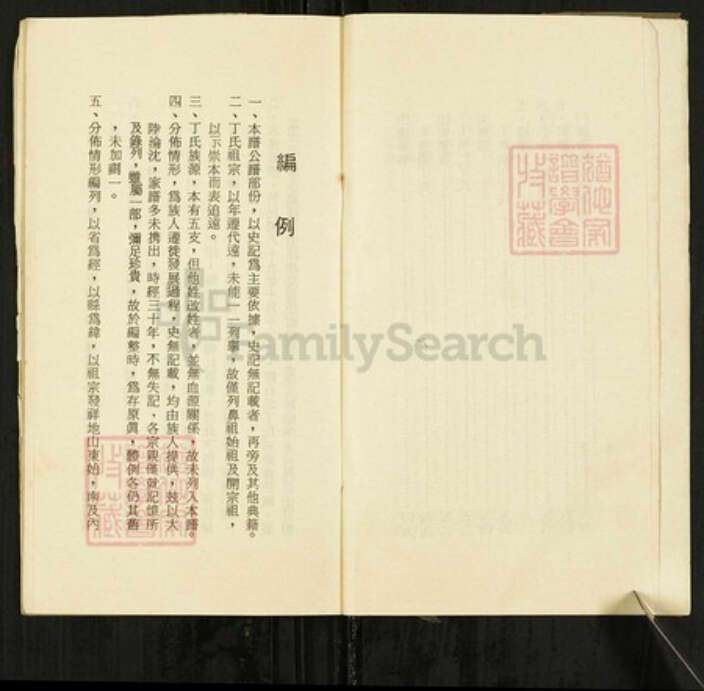 編例
一、本譜公譜部份，以史記爲主要依據，史記無記載者，再旁及其他典籍。
二、丁氏祖宗，以年遷代遠，未能一一列舉，故僅列鼻祖始祖及開宗祖，
以示崇本而表追遠。
三、丁氏族源，本有五支，但他姓改姓者，並無血源關係，故未列入本譜。
四、分佈情形，爲族人遷徙發展過程，史無記載，均由族人提供，茲以大
陸淪沈，家譜多未携出，時經三十年，不無失記，各宗親僅就記憶所
及錄列，雖屬一部，彌足珍貴，故於編整時，爲存原眞，體例各仍其舊
，未加劃一。
五、分佈情形編列，以省爲經，以縣爲緯，以祖宗發祥地山東始，南及內
FamilySearch
譜學會
特藏